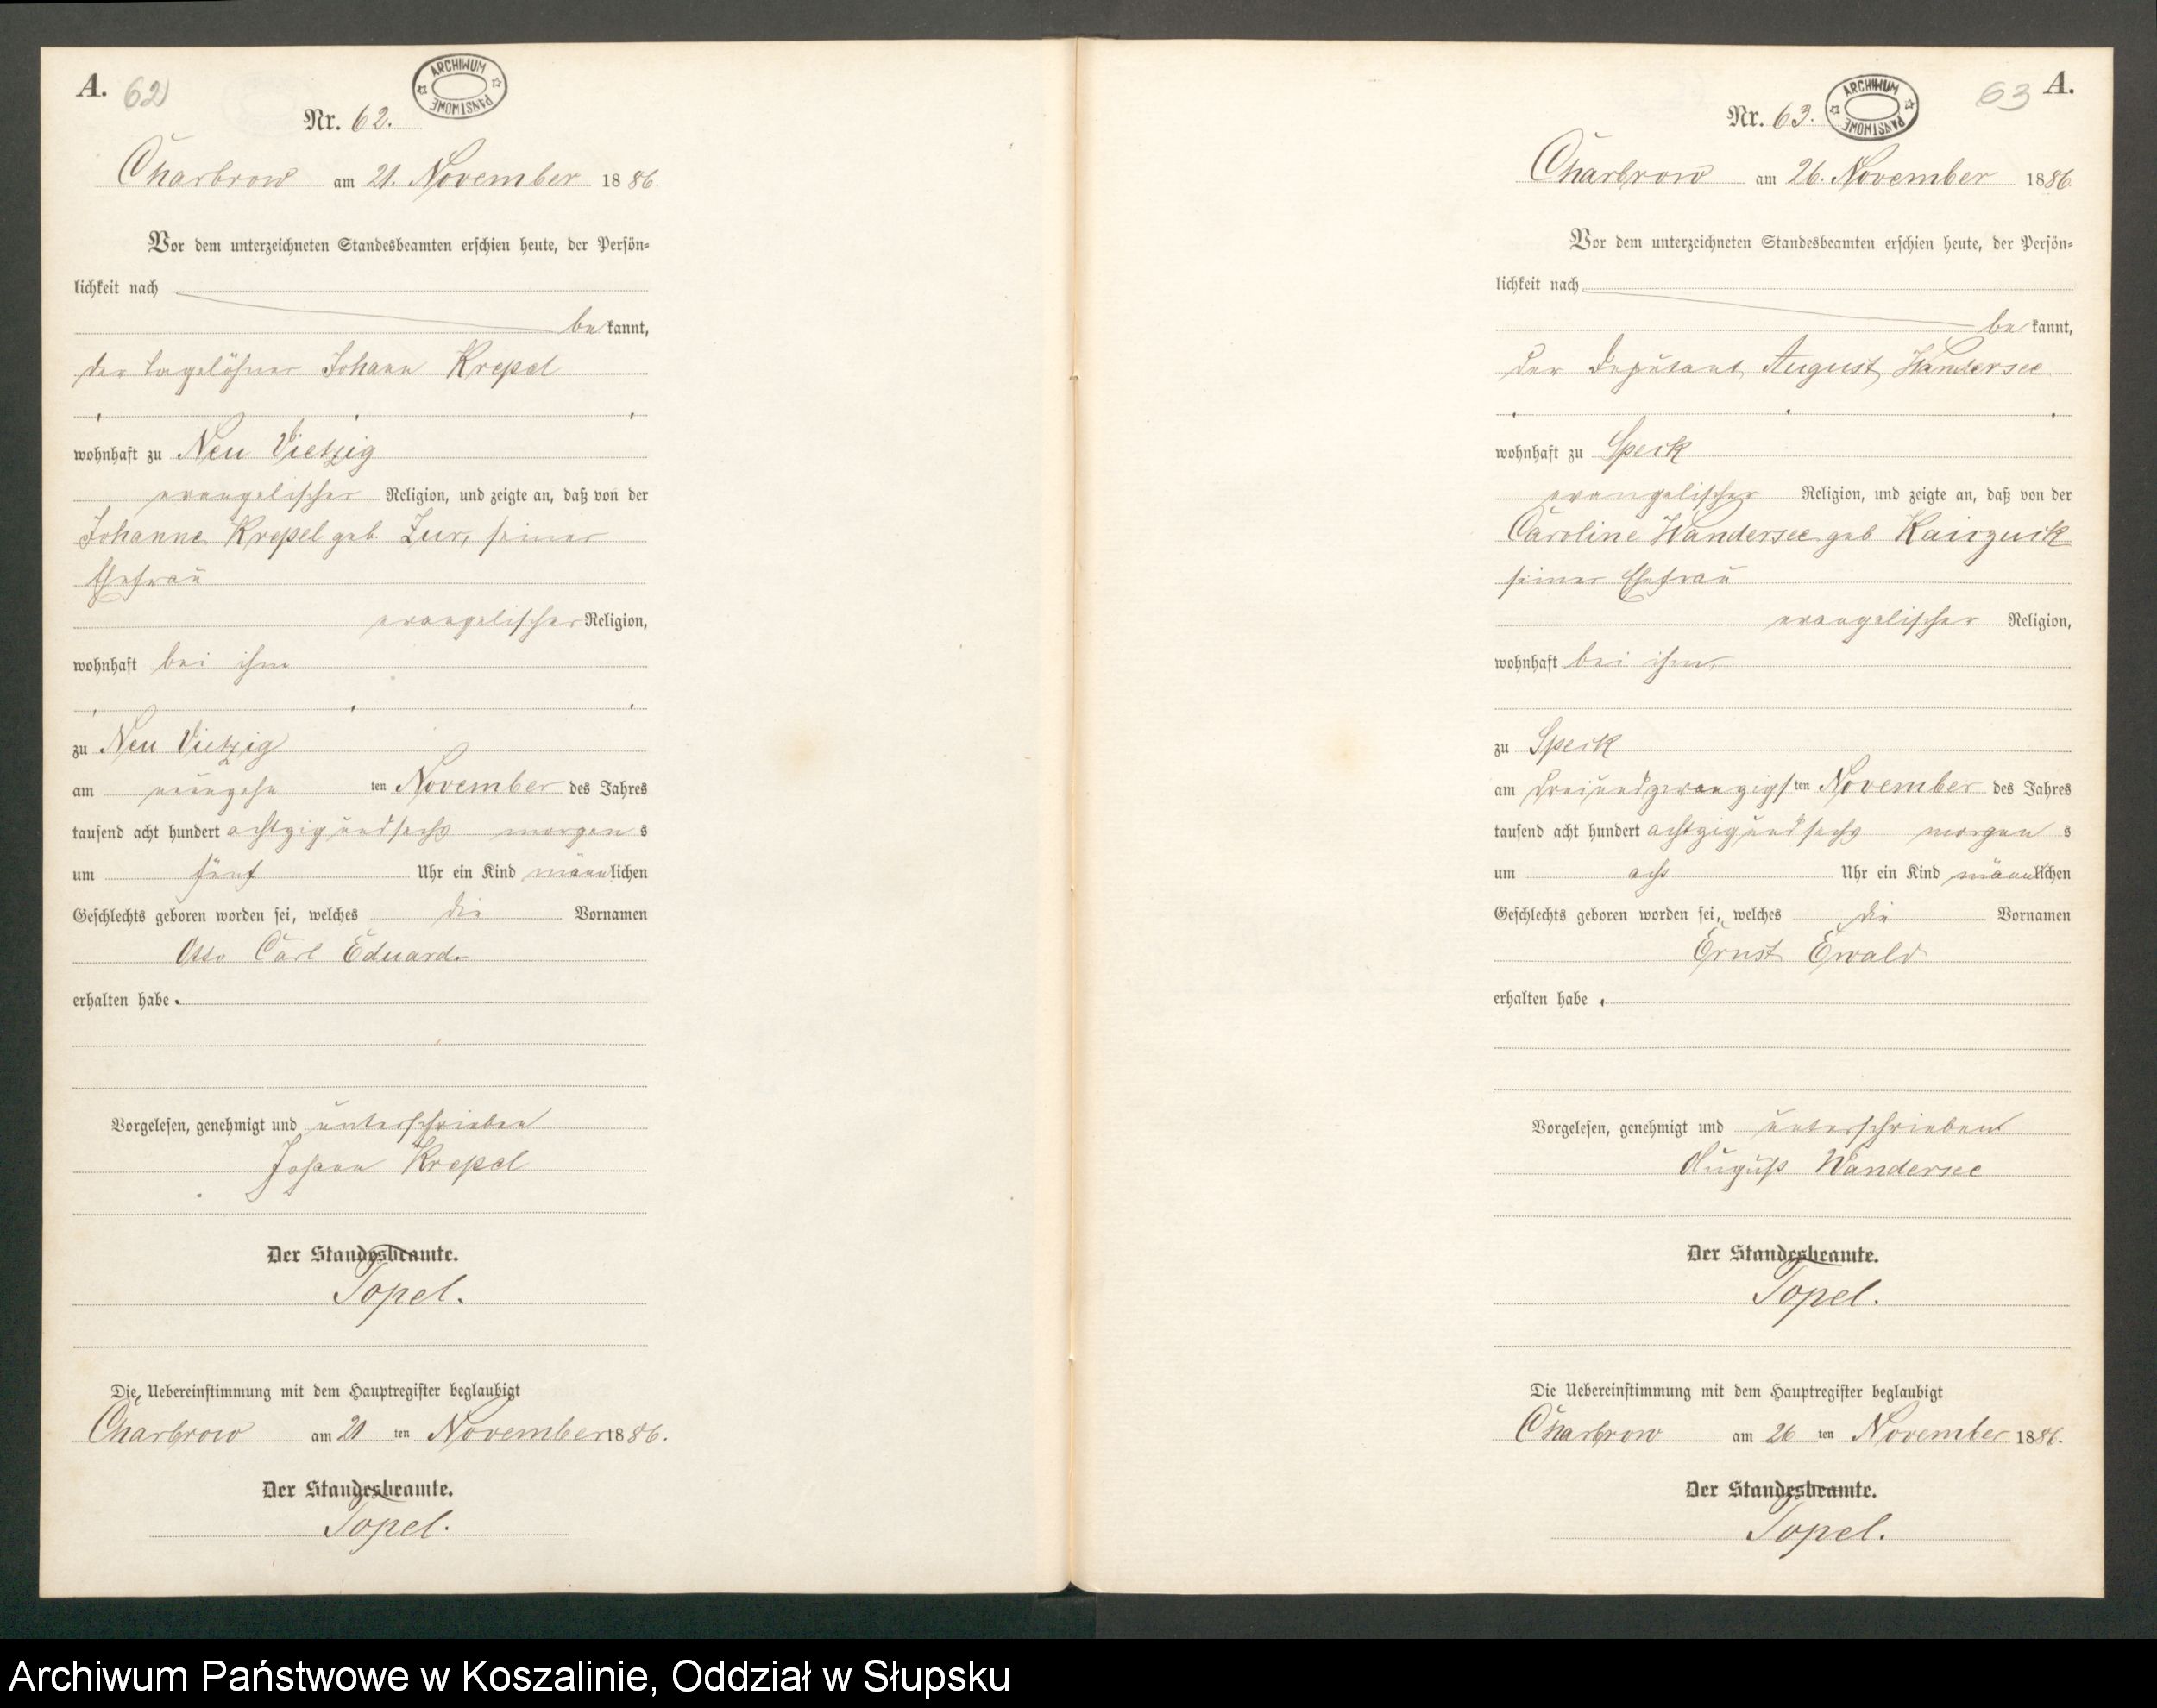 A. 62
ARCHIWUM PAŃSTWOWE
Nr. 62.
Charbrow am 21. November 1886.
Vor dem unterzeichneten Standesbeamten erschien heute, der Persön-
lichkeit nach
bekannt,
der Tagelöhner Johann Krepel
wohnhaft zu Neu Vietzig
evangelischer Religion, und zeigte an, daß von der
Johanne Krepel geb. Zur, seiner
Ehefrau
evangelischer Religion,
wohnhaft bei ihm
zu Neu Vietzig
am neunzehnten November des Jahres
tausend acht hundert achtzig und sechs morgens
um fünf Uhr ein Kind männlichen
Geschlechts geboren worden sei, welches die Vornamen
Otto Carl Eduard
erhalten habe.
Vorgelesen, genehmigt und unterschrieben
Johann Krepel
Der Standesbeamte.
Topel.
Die Uebereinstimmung mit dem Hauptregister beglaubigt
Charbrow am 21 ten November 1886.
Der Standesbeamte.
Topel.
63 A.
ARCHIWUM PAŃSTWOWE
Nr. 63.
Charbrow am 26. November 1886.
Vor dem unterzeichneten Standesbeamten erschien heute, der Persön-
lichkeit nach
bekannt,
der Deputant August Wandersee
wohnhaft zu Speck
evangelischer Religion, und zeigte an, daß von der
Caroline Wandersee geb
seiner Ehefrau
evangelischer Religion,
wohnhaft bei ihm
zu Speck
am dreiundzwanzigsten November des Jahres
tausend acht hundert achtzig und sechs morgens
um acht Uhr ein Kind männlichen
Geschlechts geboren worden sei, welches die Vornamen
Ernst Ewald
erhalten habe.
Vorgelesen, genehmigt und unterschrieben
August Wandersee
Der Standesbeamte.
Topel.
Die Uebereinstimmung mit dem Hauptregister beglaubigt
Charbrow am 26 ten November 1886.
Der Standesbeamte.
Topel.
Archiwum Państwowe w Koszalinie, Oddział w Słupsku